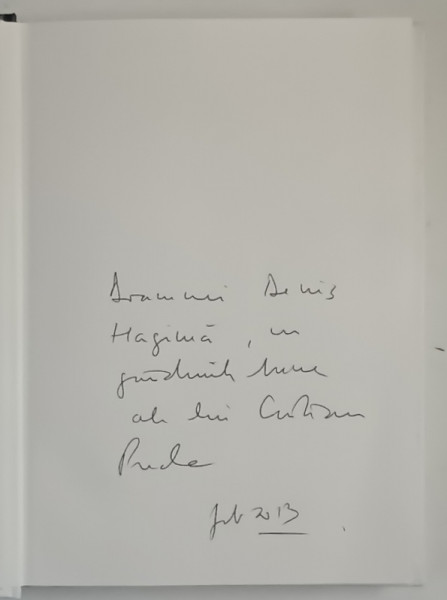 Doamnei Denis
Hagimă, cu
gândurile bune
ale lui Cristian
Preda
feb 2013